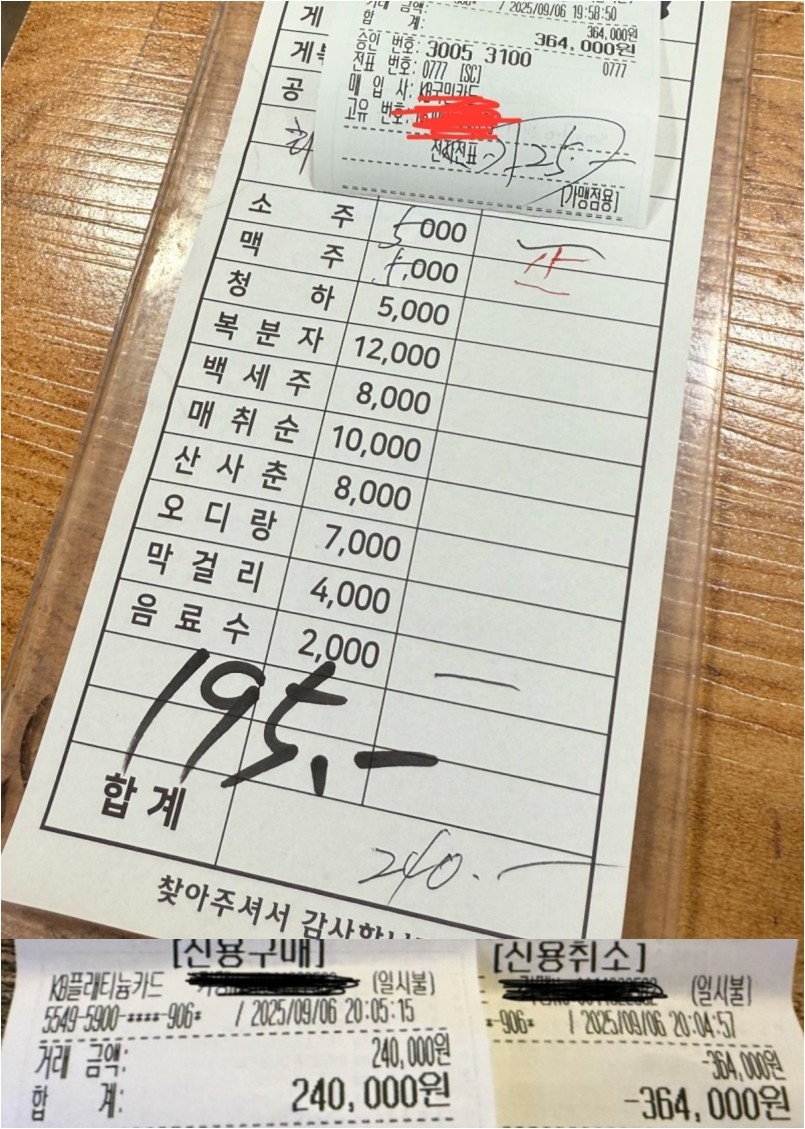 거래 금액: / 2025/09/06 19:58:50
364,000원
합 계: 364,000원
승인 번호: 3005 3100
전표 번호: 0777 [SC] 0777
매 입 사: KB국민카드
고유 번호:
전자전표 125.-
[가맹점용]
게
게
공
소 주 5000
맥 주 5,000
청 하 5,000
복 분 자 12,000
백 세 주 8,000
매 취 순 10,000
산 사 춘 8,000
오 디 랑 7,000
막 걸 리 4,000
음 료 수 2,000
195.-
합 계
240.-
찾아주셔서 감사합니
[신용구매]
KB플래티늄카드 (일시불)
5549-5900-****-906* / 2025/09/06 20:05:15
거래 금액: 240,000원
합 계: 240,000원
[신용취소]
(일시불)
*-906* / 2025/09/06 20:04:57
-364,000원
-364,000원